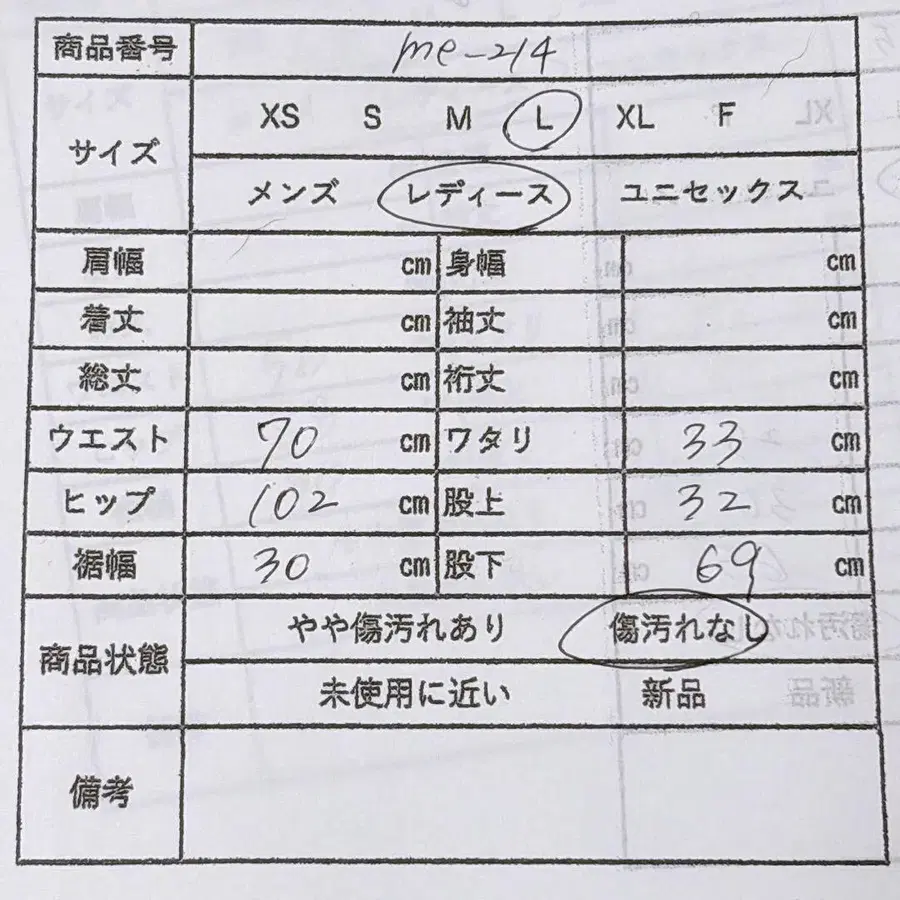 商品番号 me-214
サイズ XS S M L XL F
メンズ レディース ユニセックス
肩幅 cm 身幅 cm
着丈 cm 袖丈 cm
総丈 cm 裄丈 cm
ウエスト 70 cm ワタリ 33 cm
ヒップ 102 cm 股上 32 cm
裾幅 30 cm 股下 69 cm
商品状態 やや傷汚れあり 傷汚れなし
未使用に近い 新品
備考